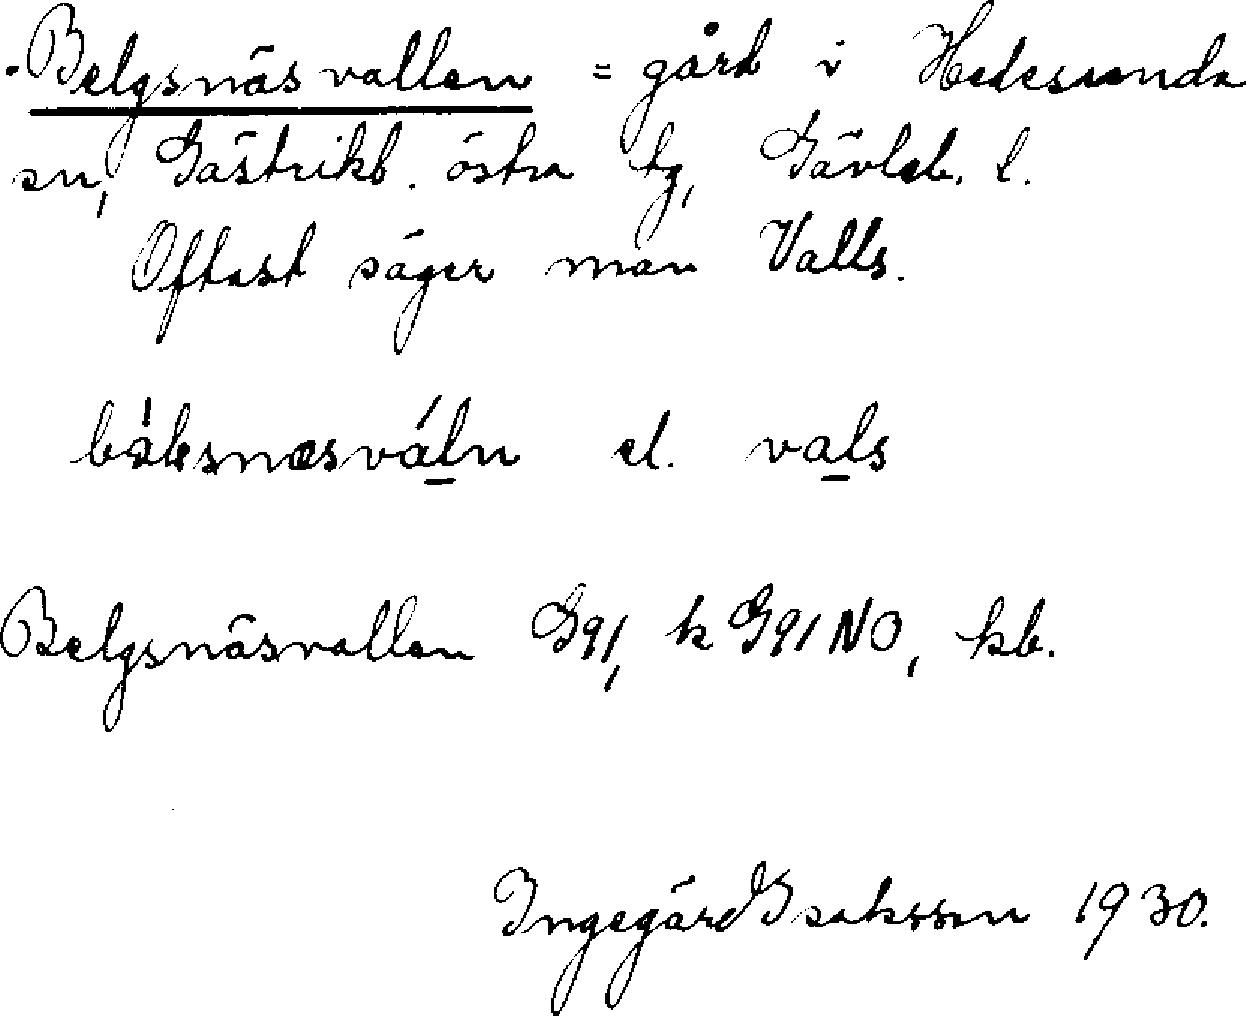 Belgsnäsvallen = gård i Hedesunda
sn, Gästrikl. östra tg, Gävleb. l.
Oftast säger man Valls.
el. vals
Belgsnäsvallen G91, k G91NO, kb.
Ingegärd Isaksson 1930.